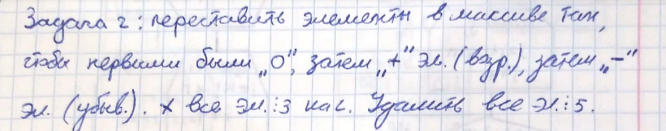 Задача 2: переставить элементы в массиве так,
чтобы первыми были „0", затем „+" эл. (возр.), затем „–"
эл. (убыв.). × все эл. ⋮ 3 на 2. Удалить все эл. ⋮ 5.